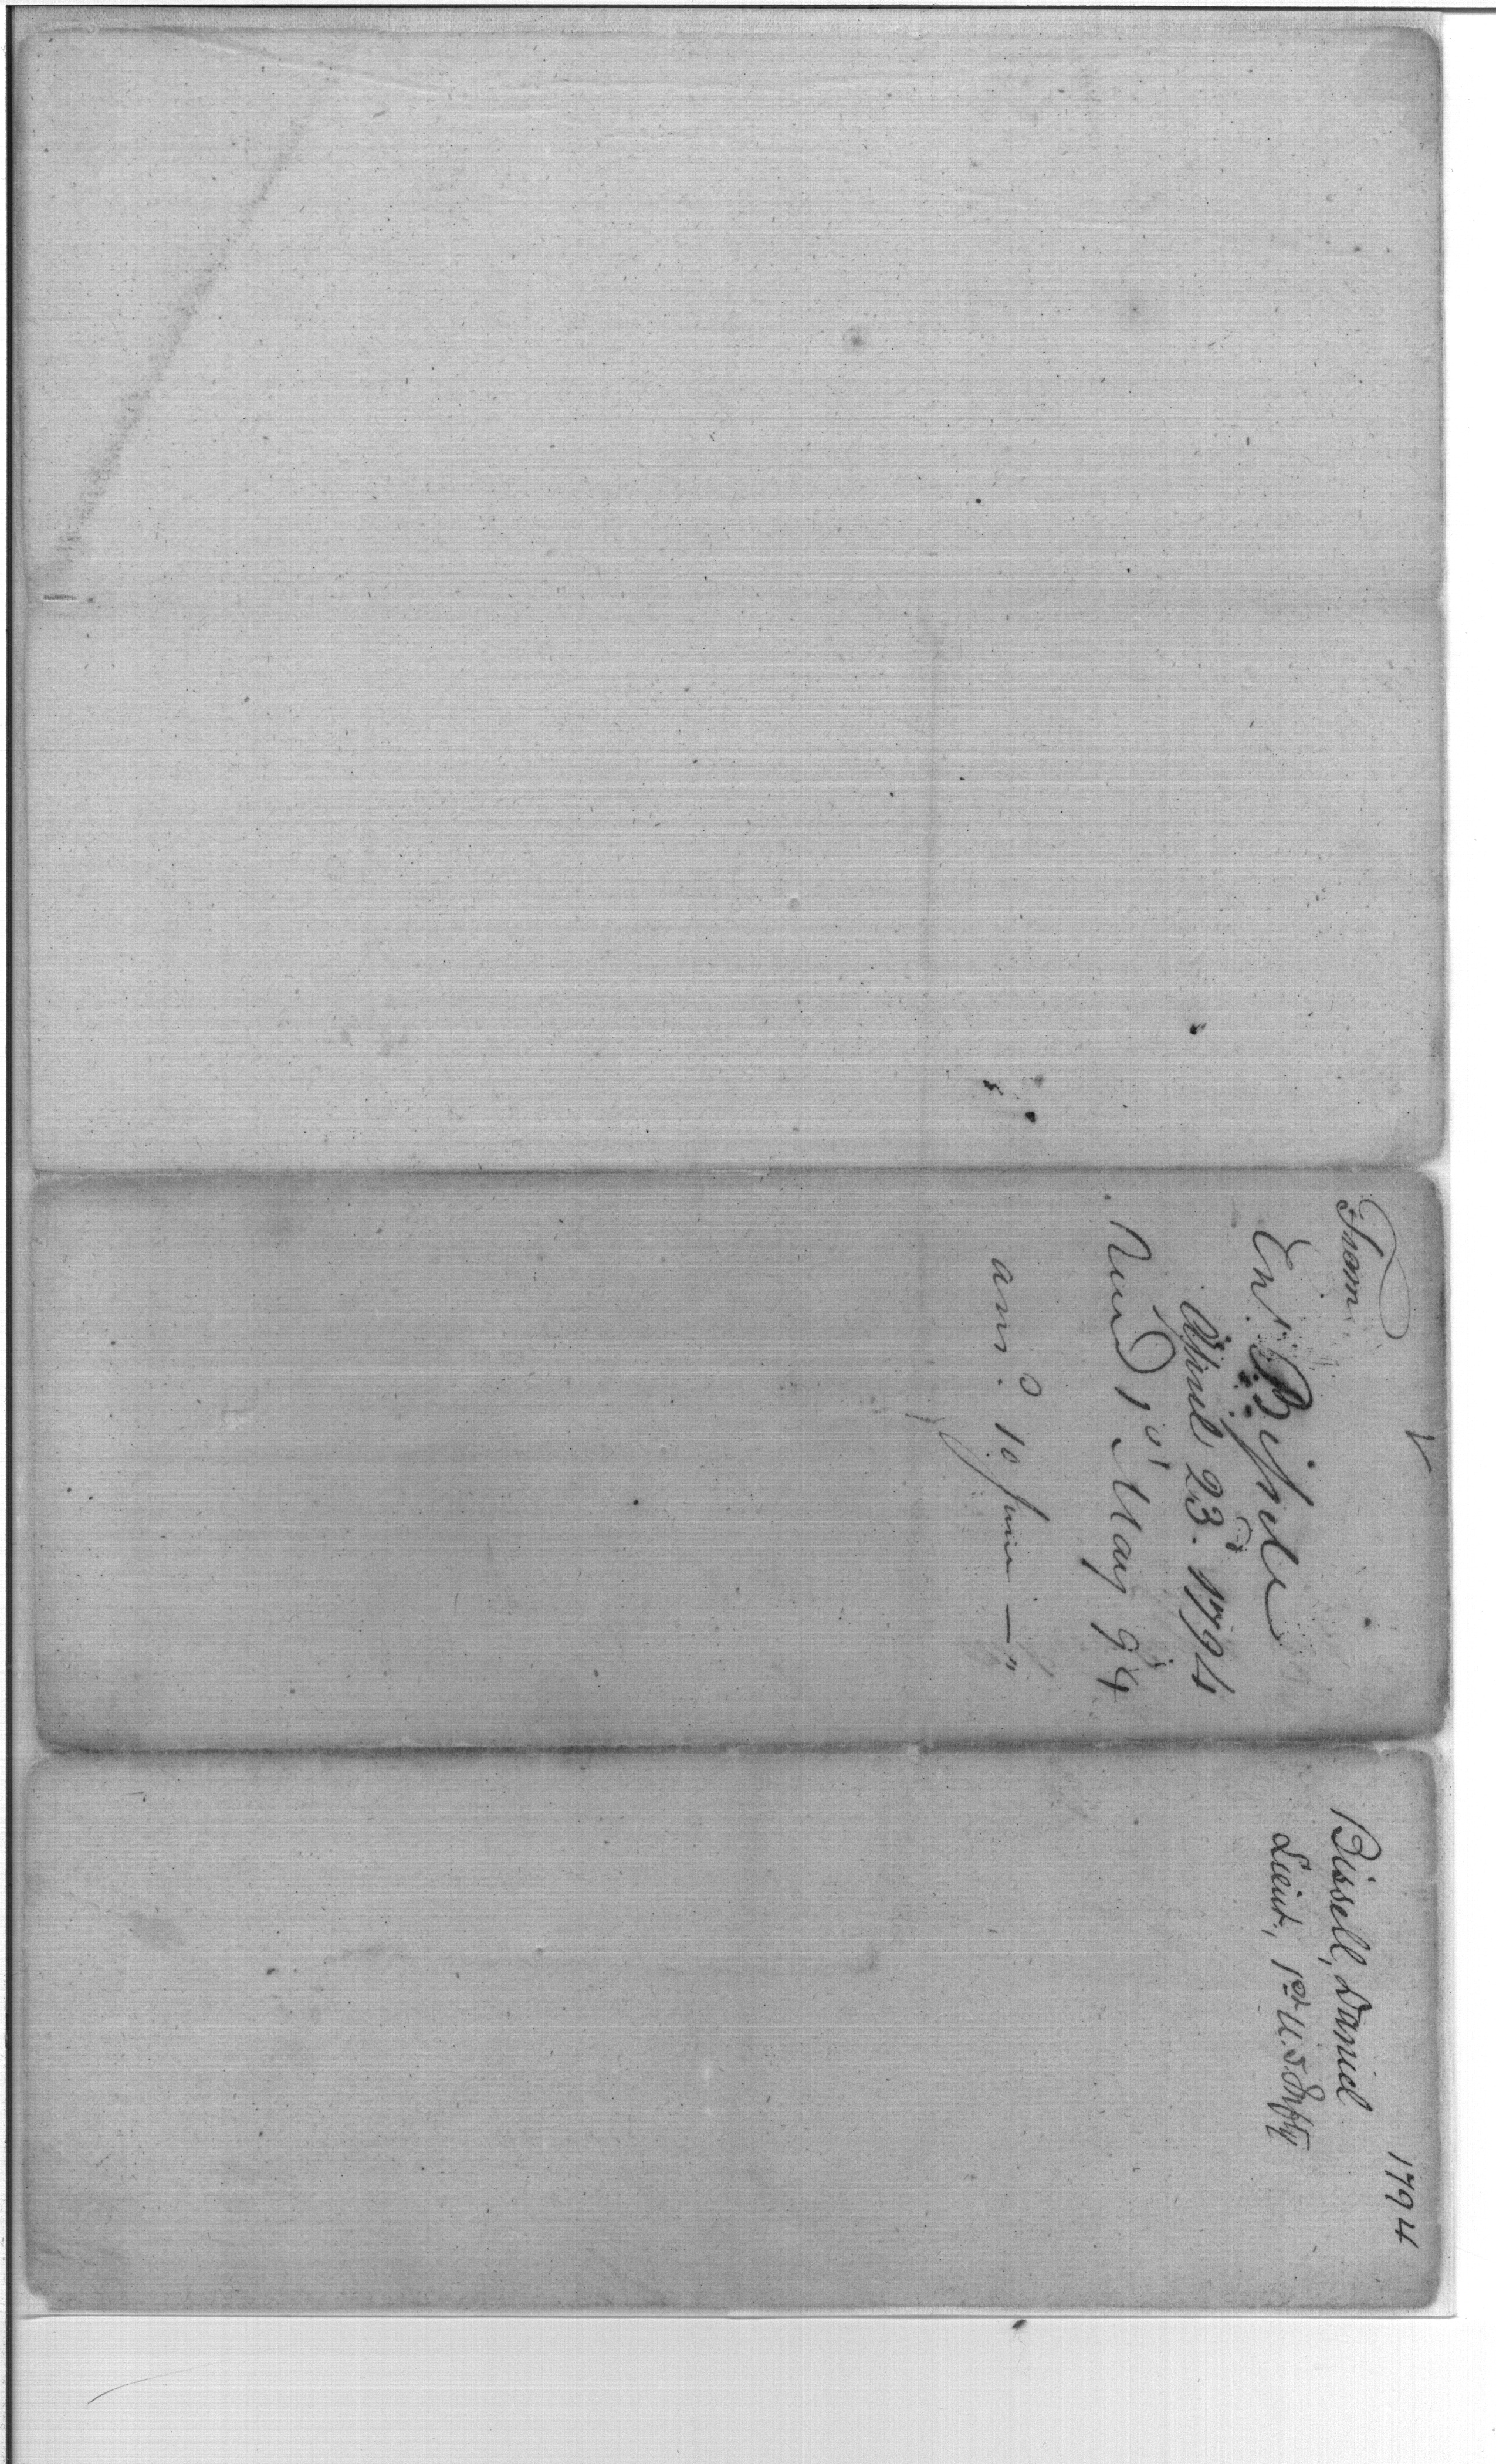 From
Ens.n Bissell
April 23.d 1794
Rec.d 1.st May 94
ans.d 10 June — "
1794
Bissell, Daniel
Lieut., 1st U.S. Infty